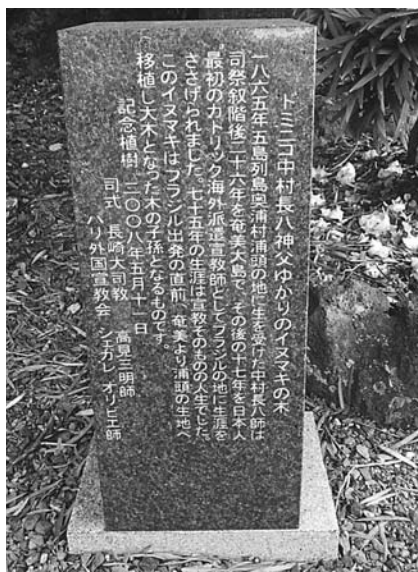 ドミニコ中村長八神父ゆかりのイヌマキの木
一八六五年五島列島奥浦村浦頭の地に生を受けた中村長八師は
司祭叙階後二十六年を奄美大島で、その後の十七年を日本人
最初のカトリック海外派遣宣教師としてブラジルの地に生涯を
ささげられました。七十五年の生涯は宣教そのものの人生でした。
このイヌマキはブラジル出発の直前、奄美より浦頭の生地へ
移植し大木となった木の子孫となるものです。
記念植樹 二〇〇八年五月十一日
司式 長崎大司教 高見三明師
パリ外国宣教会 シェガレ オリビエ師